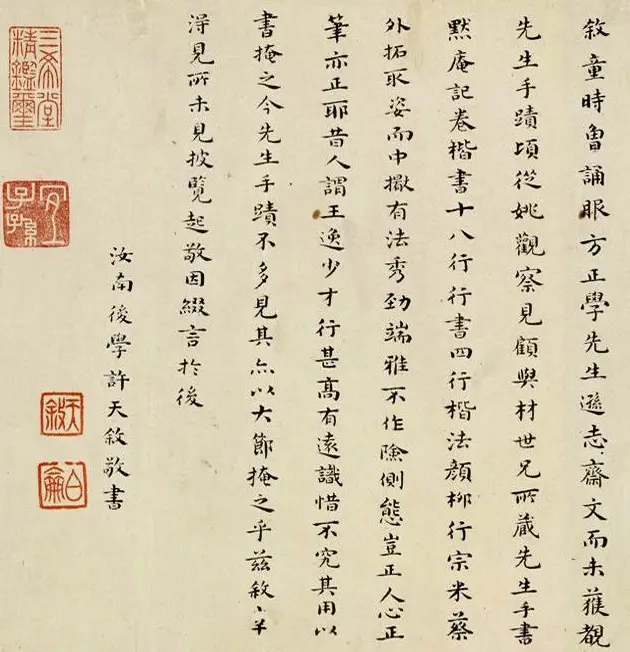 敘童時曾誦眼方正學先生遜志齋文而未獲覩
先生手蹟頃從姚觀察見顧與材世兄所藏先生手書
默庵記卷楷書十八行行書四行楷法顏柳行宗米蔡
外拓取姿而中擫有法秀勁端雅不作險側態豈正人心正
筆亦正耶昔人謂王逸少才行甚高有遠識惜不究其用以
書掩之今先生手蹟不多見其亦以大節掩之乎茲敘、幸
得見所未見披覽起敬因綴言於後
汝南後學許天敘敬書
三希堂
精鑑璽
宜
子孫
天敘